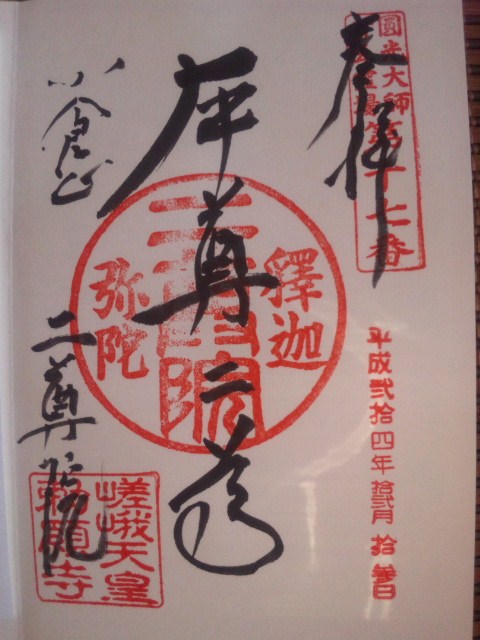 圓光大師
霊場第十七番
奉拝
平成弐拾四年拾弐月拾参日
本尊二尊
釋迦
二尊院
弥陀
小倉山
二尊院
嵯峨天皇
勅願寺